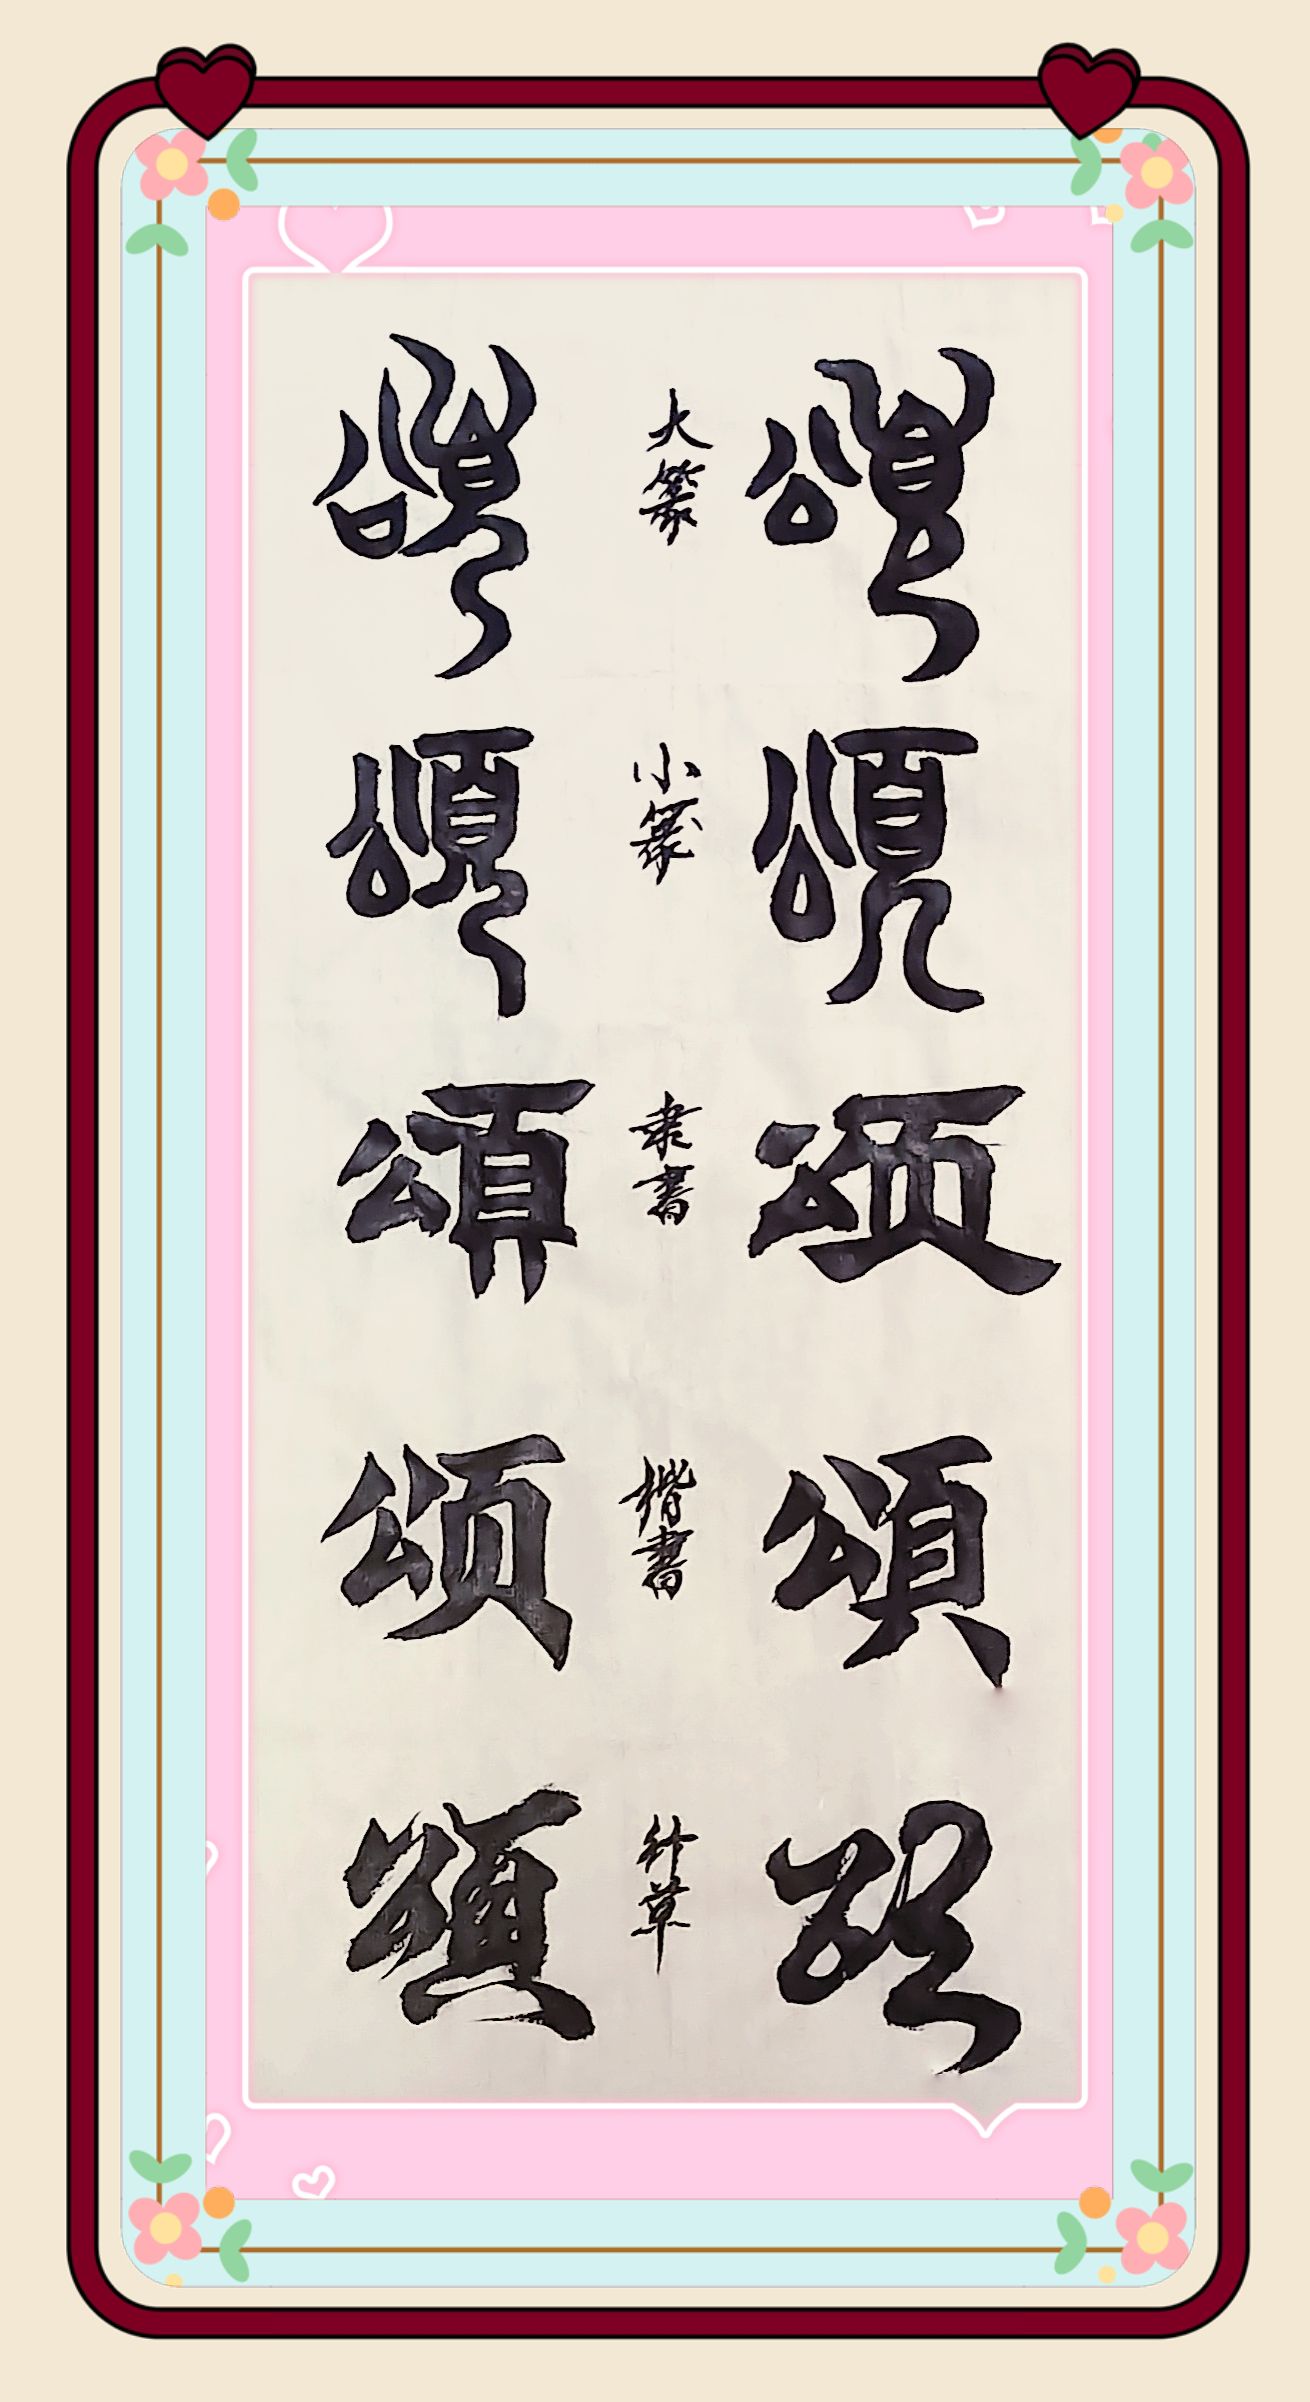 頌 大篆 頌
頌 小篆 頌
頌 隶書 颂
颂 楷書 頌
頌 行草 颂